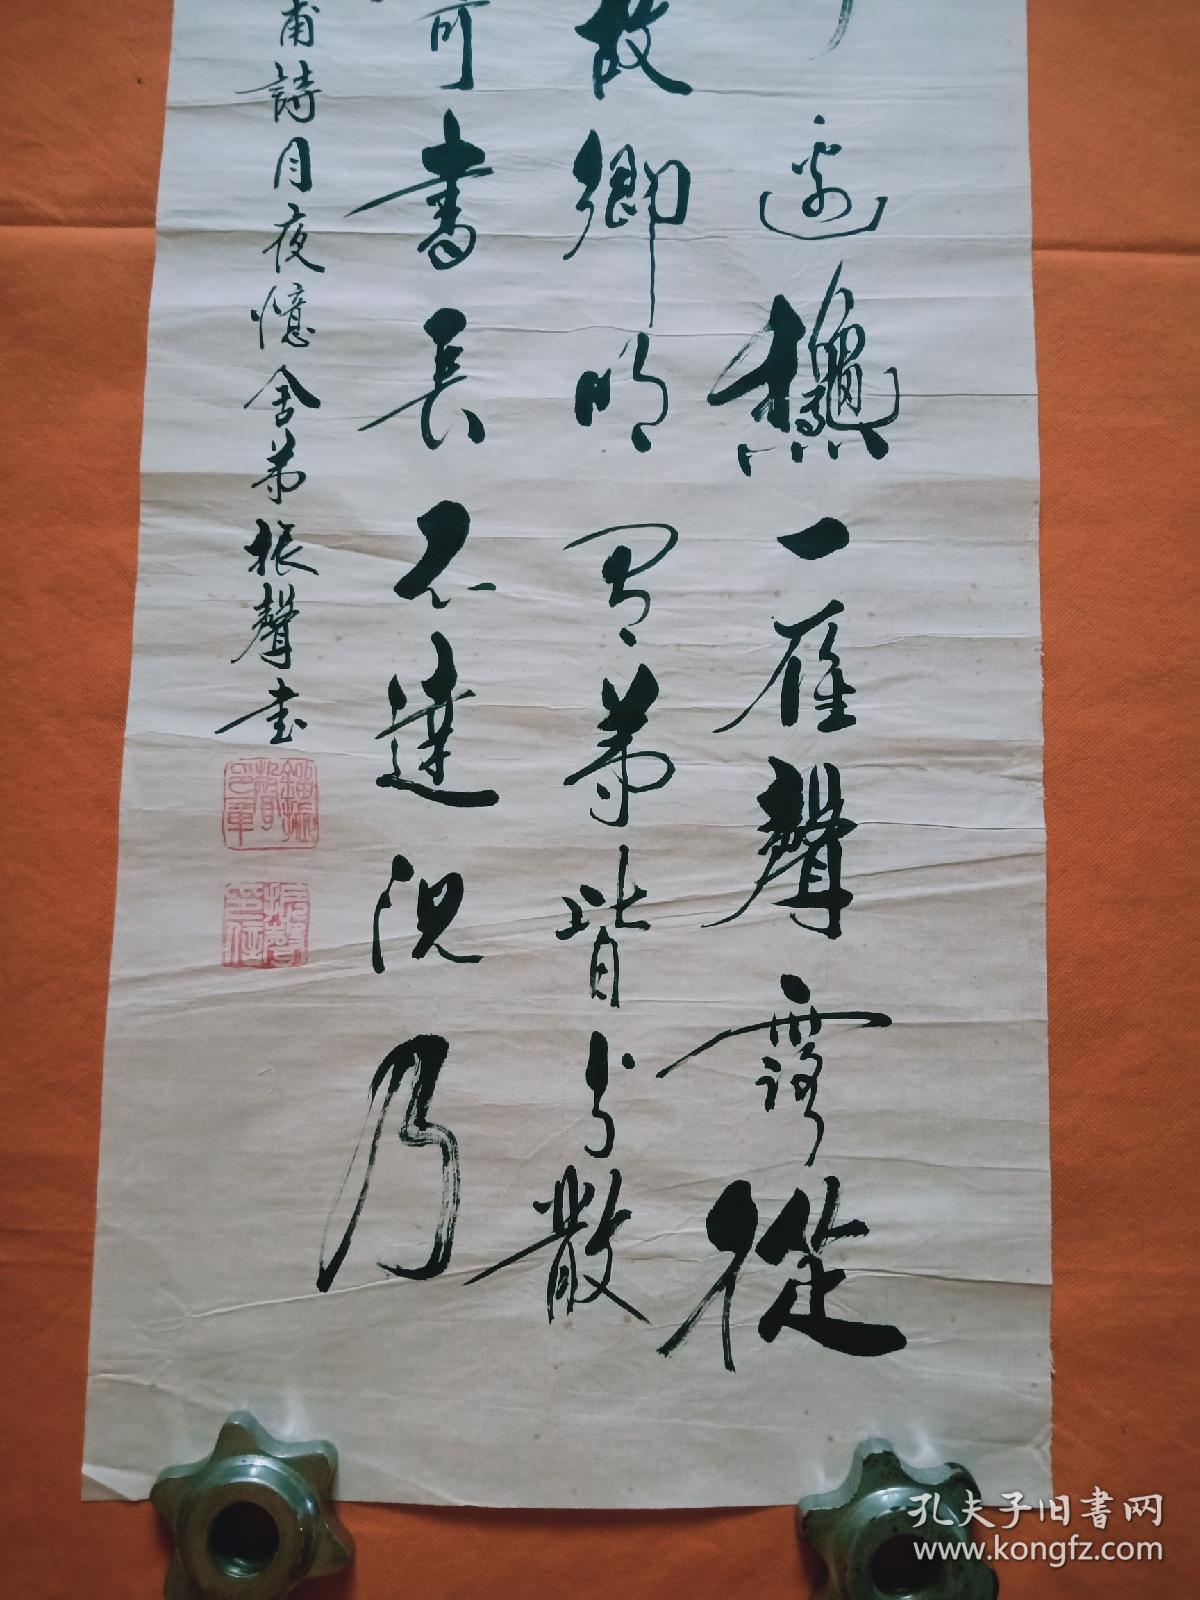 邊龝一雁聲露從
故鄉明有弟皆分散
寄書長不達況乃
甫詩月夜憶舍弟振聲書
振聲印信
孔夫子旧书网
www.kongfz.com